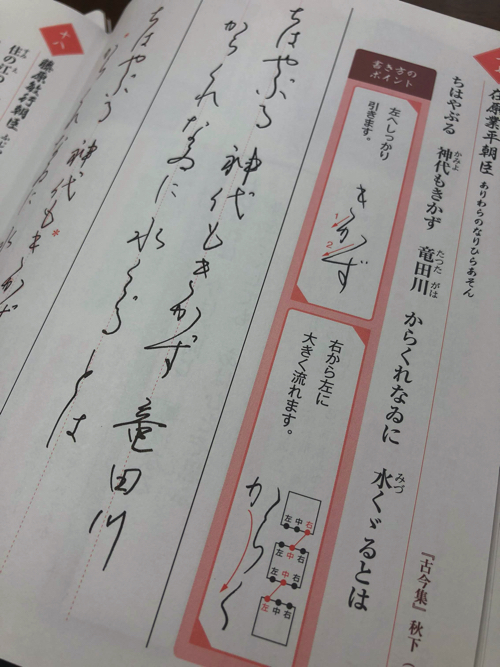 在原業平朝臣 ありわらのなりひらあそん
ちはやぶる 神代もきかず 竜田川 からくれなゐに 水くゞるとは
かみよ
たつた がは
みづ
『古今集』秋下
書き方の
ポイント
左へしっかり
引きます。
きかず
1
2
右から左に
大きく流れます。
からく
左中右
左中右
左中右
左中右
ちはやぶる 神代もきかず 竜田川
からくれなゐに 水くゞる とは
ちはやぶる 神代もきかず
藤原敏行朝臣
住の江の